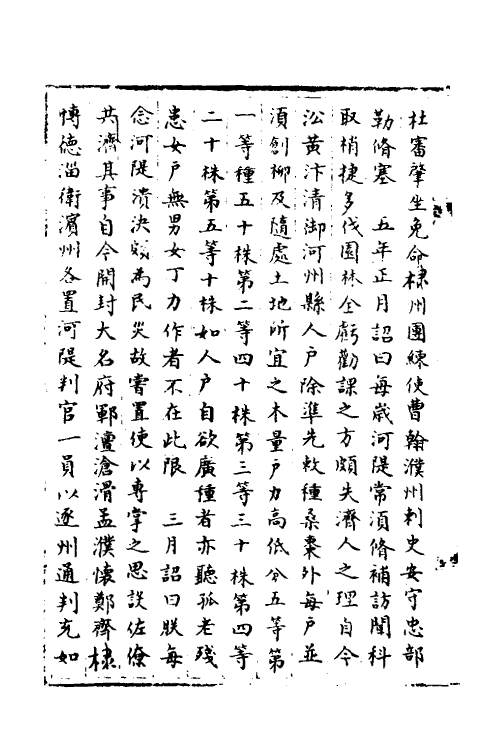 杜審肇坐免命棣州團練使曹翰濮州刺史安守忠部
勒脩塞　五年正月詔曰每歲河隄常湏脩補訪聞科
取梢揵多伐園林全虧勸課之方頗失濟人之理自今
㳂黃汴清御河州縣人戶除準先敕種桑棗外每戶並
湏創柳及隨處土地所宜之木量戶力高低分五等第
一等種五十株第二等四十株第三等三十株第四等
二十株第五等十株如人戶自欲廣種者亦聽孤老殘
患女戶無男女丁力作者不在此限　三月詔曰朕每
念河隄潰決頗為民災故嘗置使以專掌之思設佐僚
共濟其事自今開封大名府鄆澶滄滑孟濮懷鄭齊棣
博德淄衛濱州各置河隄判官一員以逐州通判充如